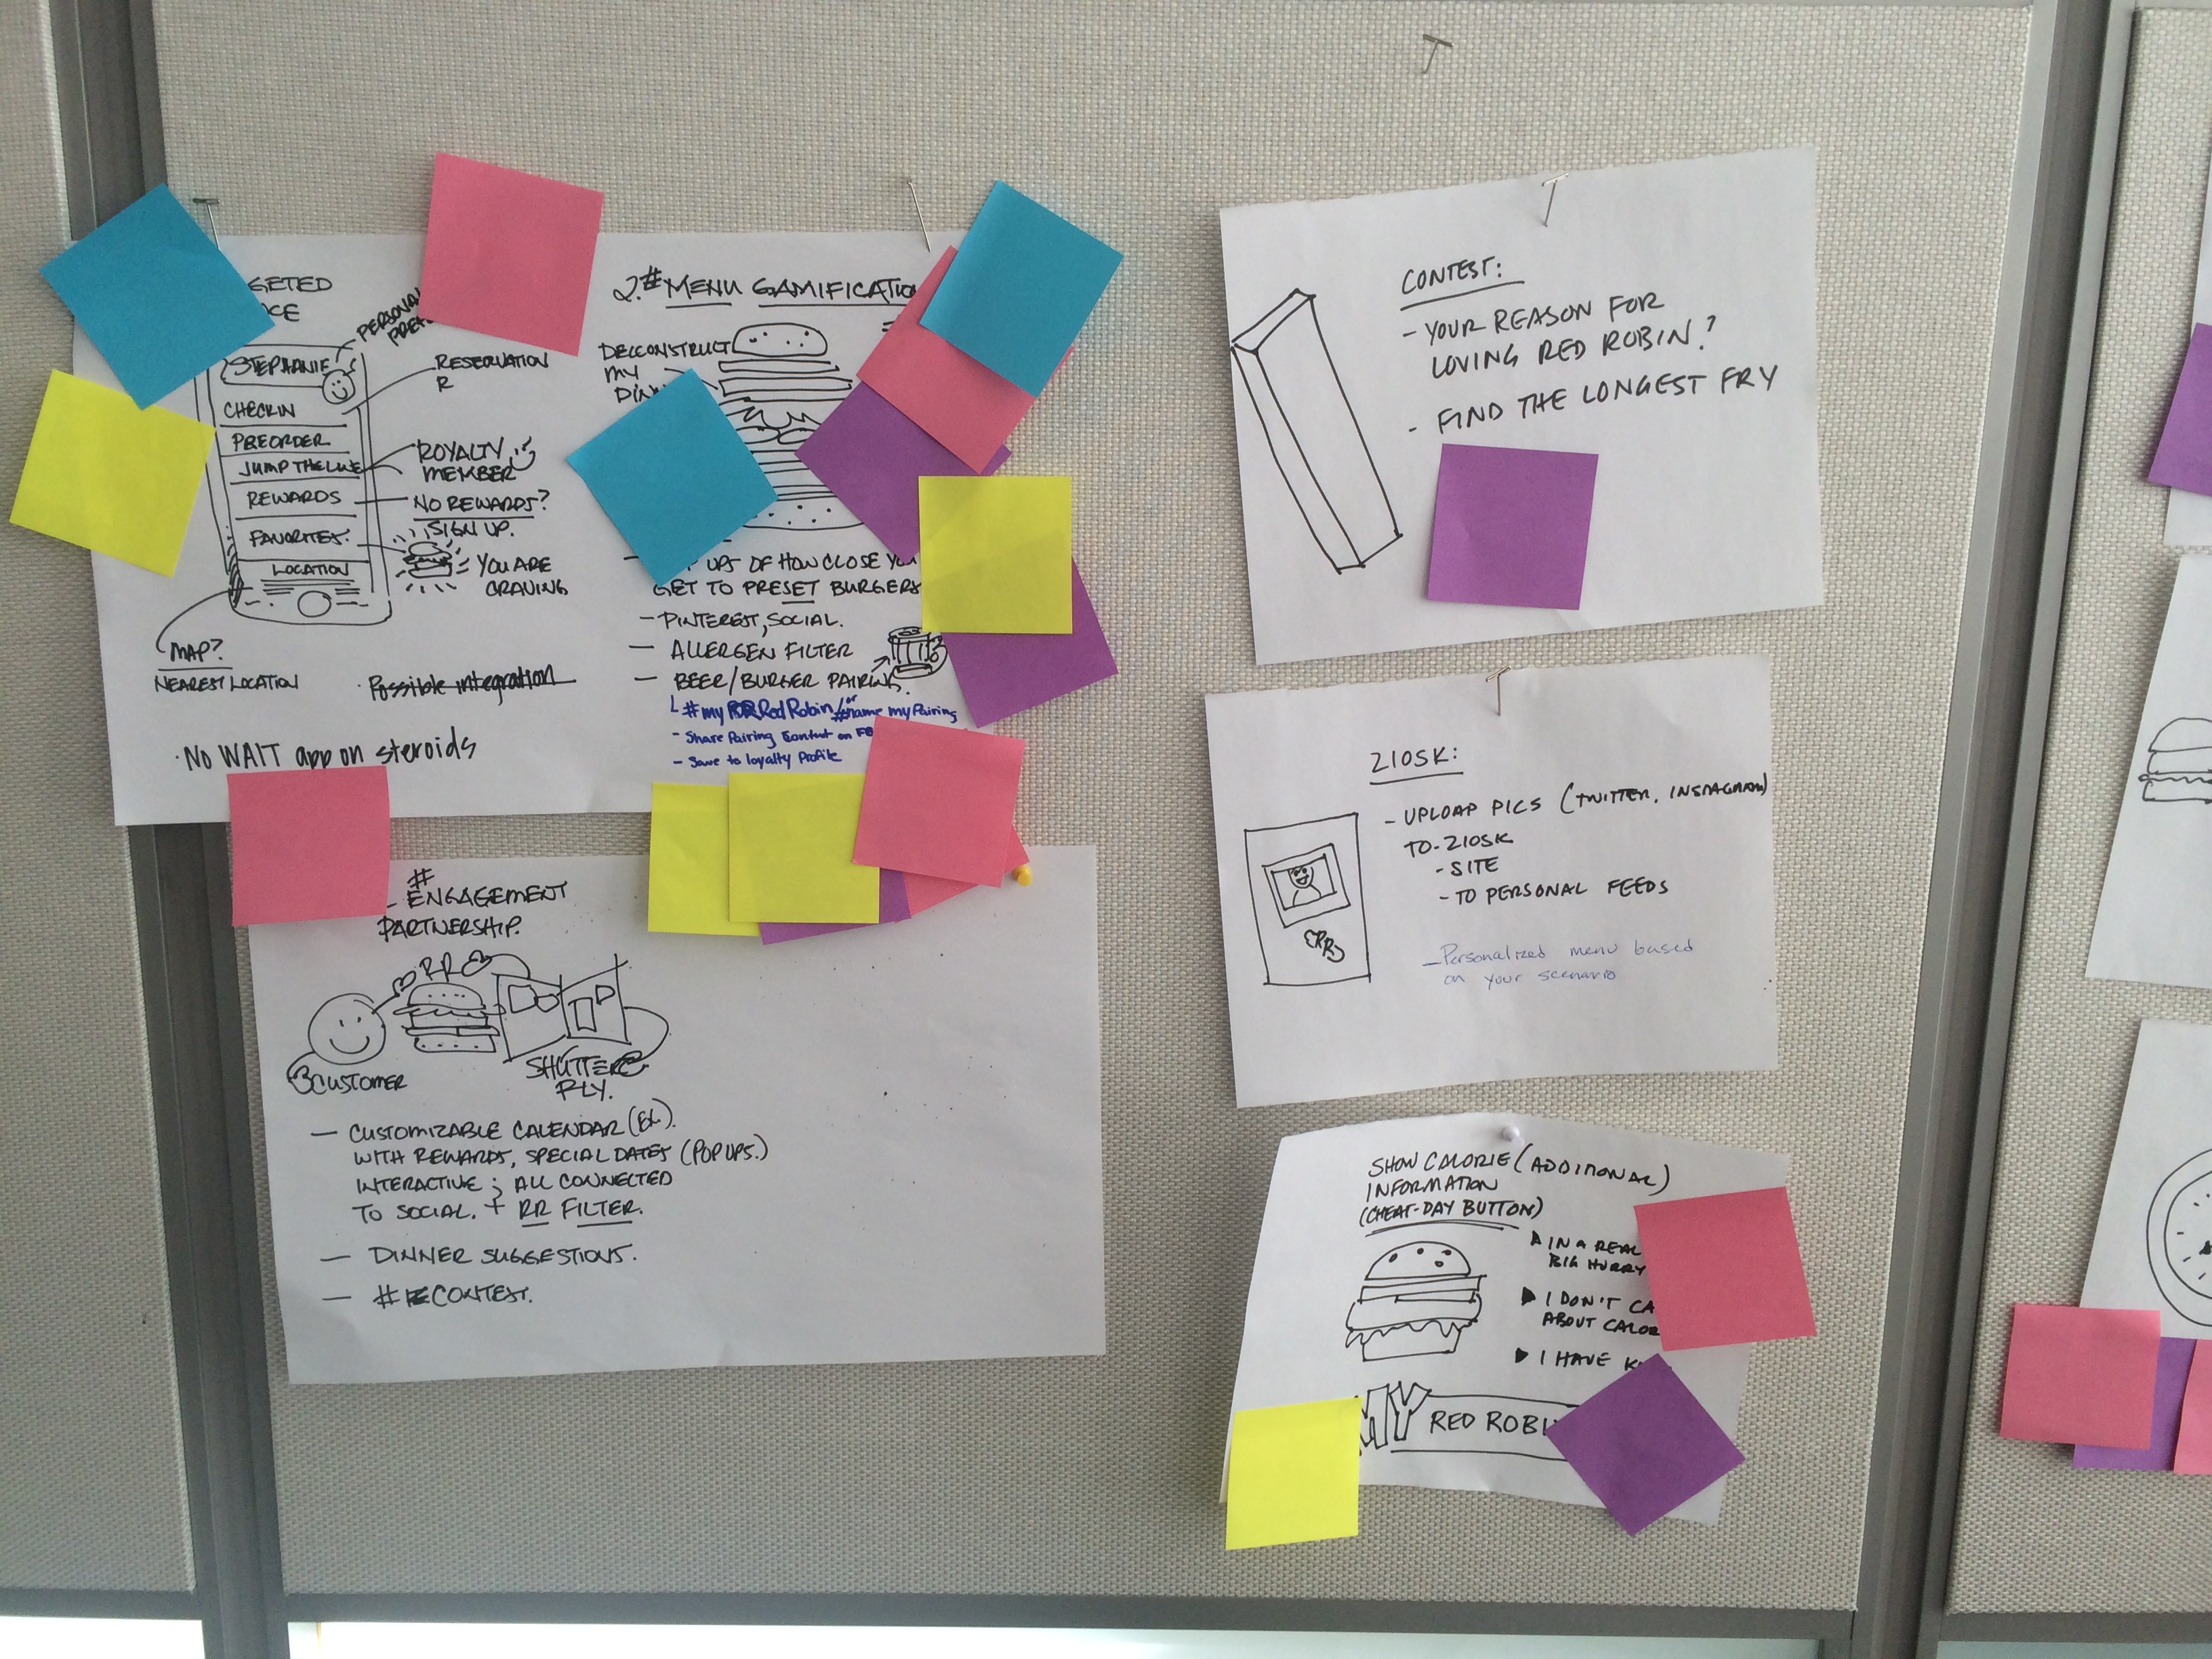 GETED
CE
PERSONAL
STEPHANIE
RESERVATION
R
CHECKIN
PREORDER
JUMP THE LINE
ROYALTY
MEMBER
REWARDS
NO REWARDS?
SIGN UP.
FAVORITES.
YOU ARE
CRAVING
LOCATION
MAP?
NEAREST LOCATION
· Possible integration
· No WAIT app on steroids
2.# MENU GAMIFICATIO
DECONSTRUCT
MY
DIN
UPS OF HOW CLOSE YOU
GET TO PRESET BURGERS
- PINTEREST, SOCIAL.
- ALLERGEN FILTER
- BEER/BURGER PAIRING.
#my Red Robin / or #name my Pairing
- Share Pairing Content on FB
- Save to loyalty Profile
#
ENGAGEMENT
PARTNERSHIP.
RR
CUSTOMER
SHUTTER
FLY.
- CUSTOMIZABLE CALENDAR (EX).
WITH REWARDS, SPECIAL DATES (POP UPS.)
INTERACTIVE ; ALL CONNECTED
TO SOCIAL. + RR FILTER.
- DINNER SUGGESTIONS.
- # CONTEST.
CONTEST:
- YOUR REASON FOR
LOVING RED ROBIN?
- FIND THE LONGEST FRY
ZIOSK:
- UPLOAD PICS (TWITTER, INSTAGRAM)
TO ZIOSK
- SITE
- TO PERSONAL FEEDS
RR
- Personalized menu based
on your scenario
SHOW CALORIE (ADDITIONAL)
INFORMATION
(CHEAT-DAY BUTTON)
IN A REAL
BIG HURRY
I DON'T CA
ABOUT CALOR
I HAVE K
MY RED ROBI